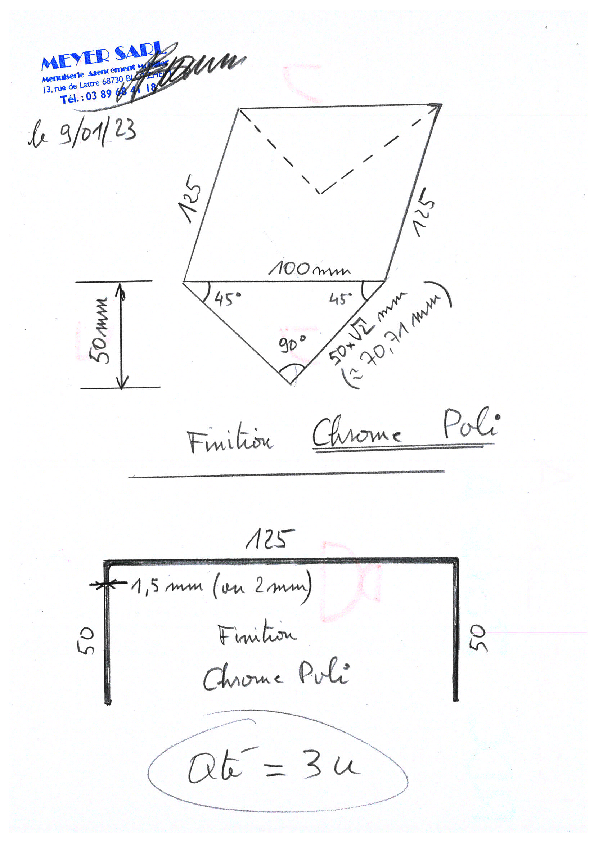 MEYER SARL
Menuiserie Agencement
13, rue de Lattre 68730 BL
Tél. : 03 89 68 41 18
le 9/01/23
125
125
100 mm
45°
45°
90°
50 mm
50×√2 mm
(≈ 70,71 mm)
Finition Chrome Poli
125
1,5 mm (ou 2 mm)
50
50
Finition
Chrome Poli
Qté = 3 u